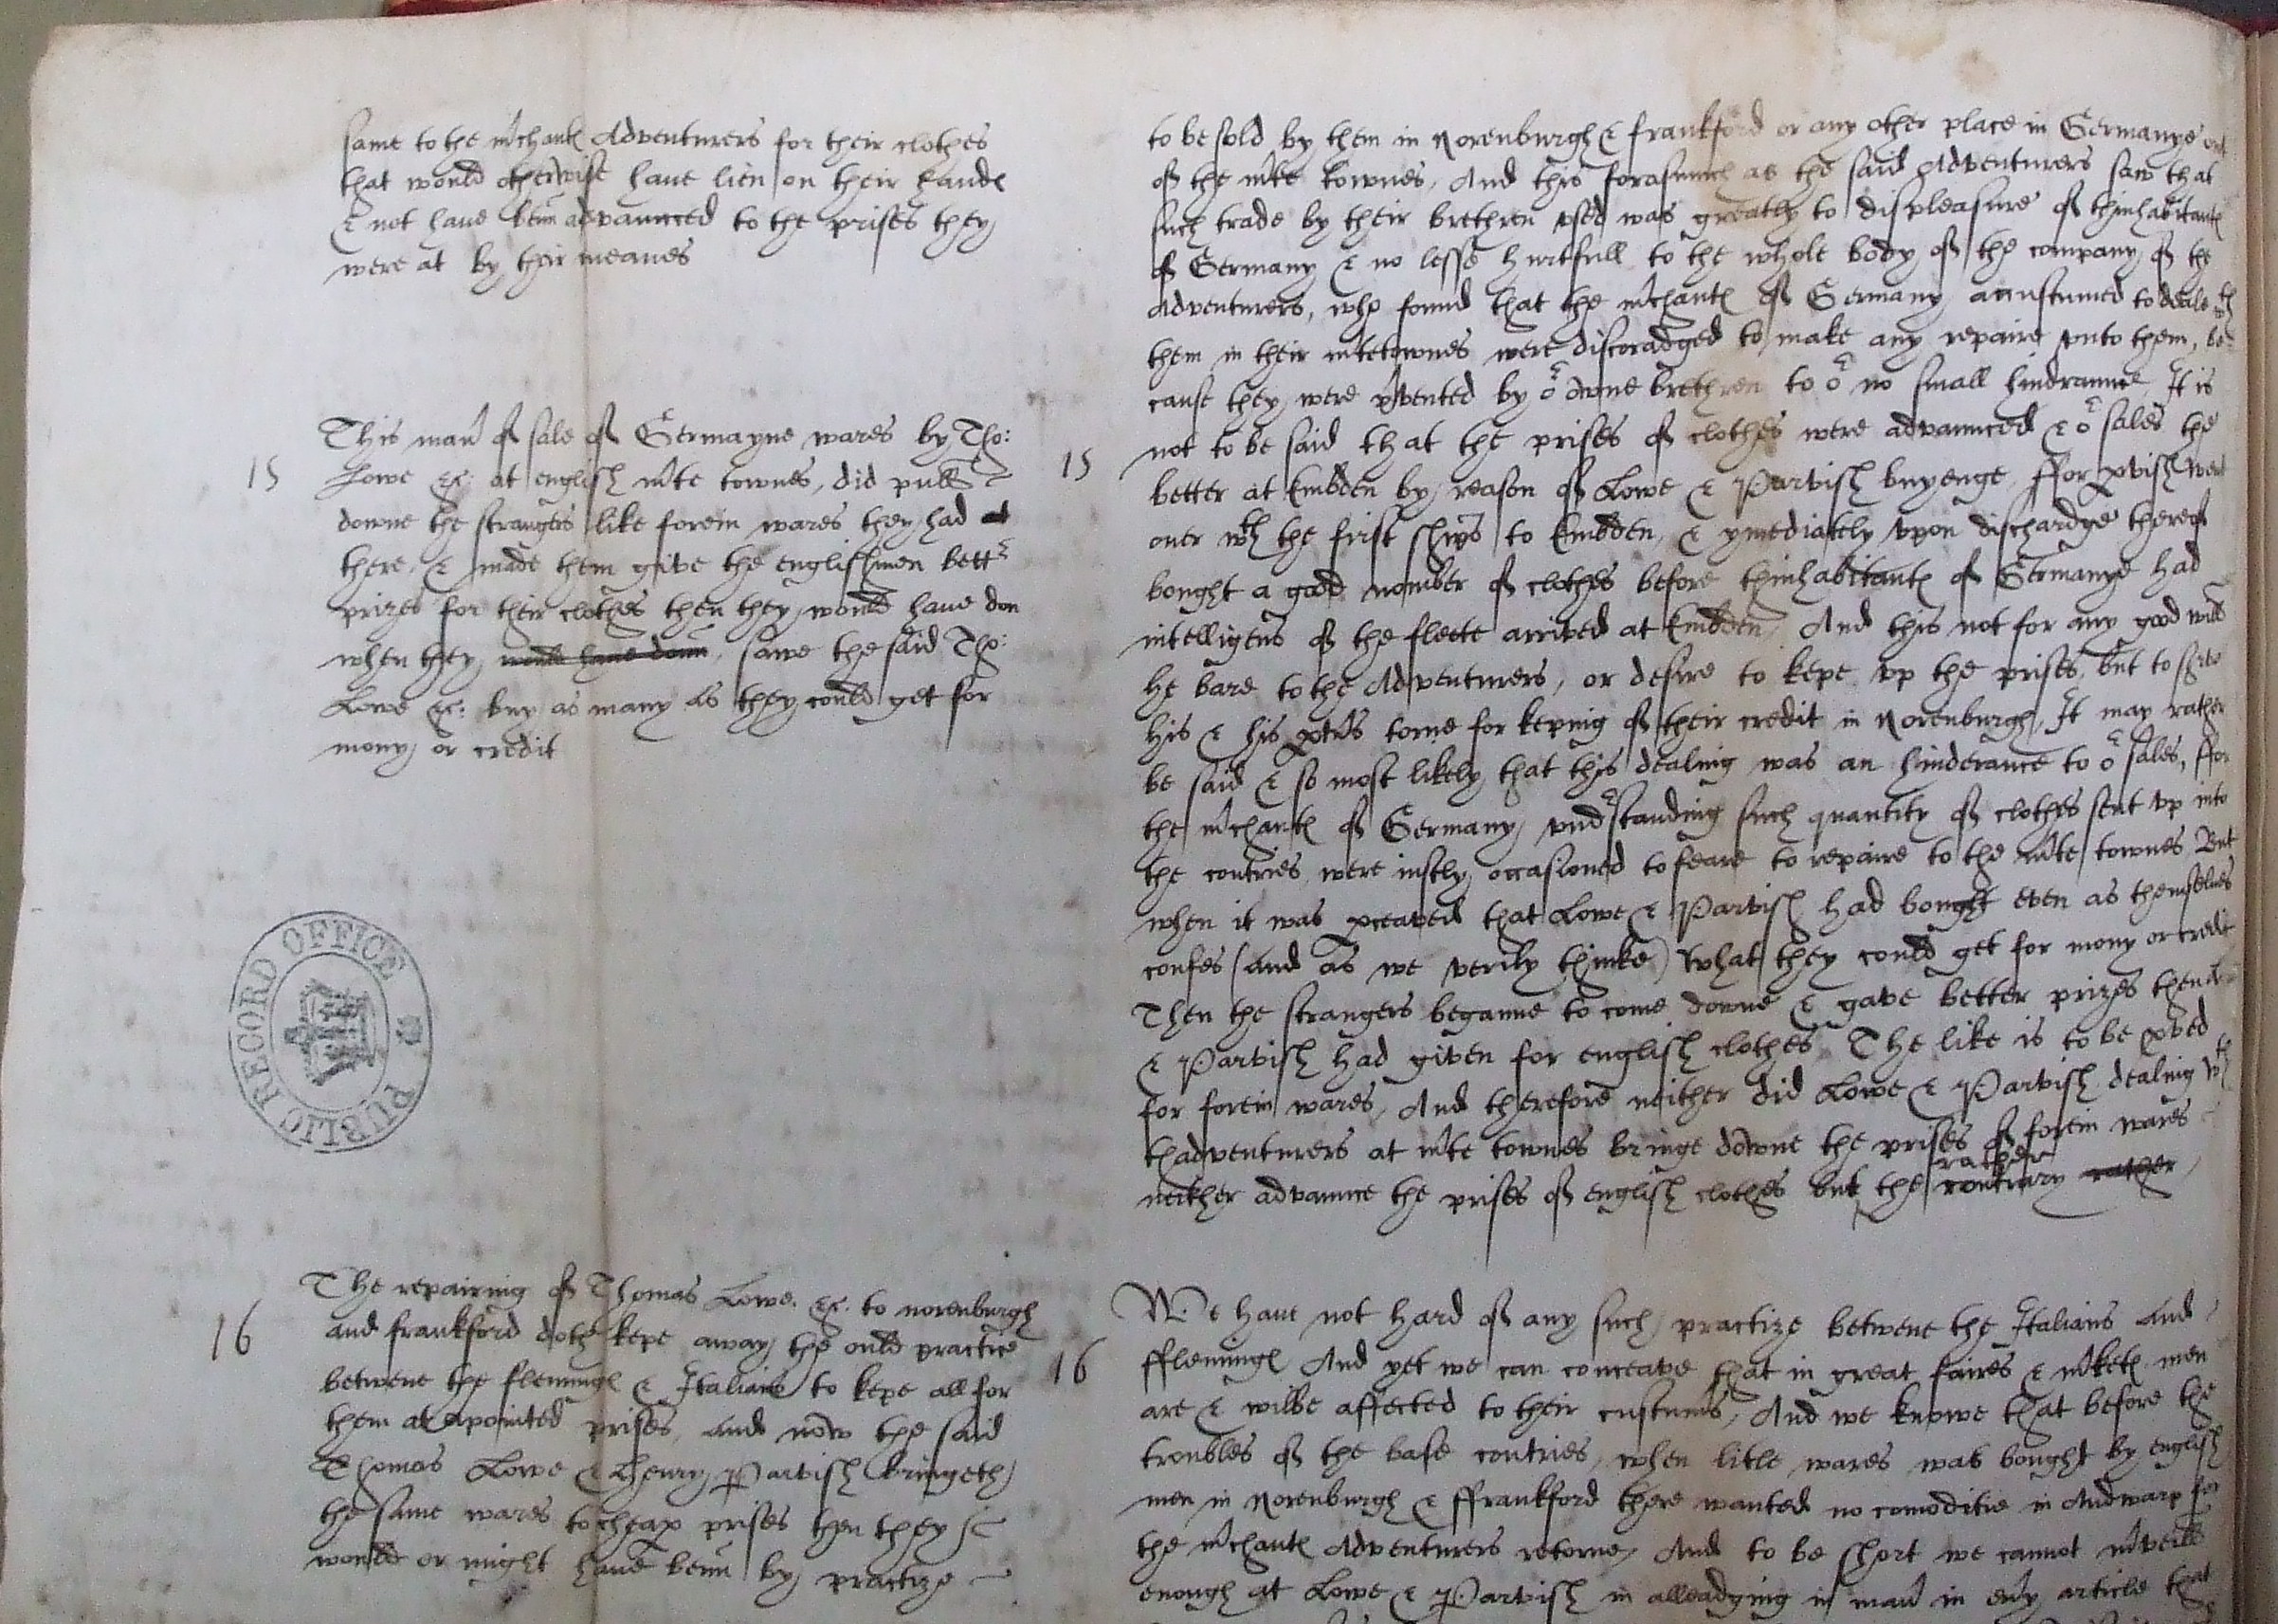 same to the mchants Adventurers for their clothes
that would otherwise haue lien on their handes
& not haue benn advaunced to the prises they
were at by their meanes
This man of sale of Germayne wares by Tho:
15 Lowe &c: at english mte townes, did pull
downe the strangers like forein wares they had at
there, & made them give the englishmen bettr
prizes for their clothes then they would haue don
when they would haue donn, sawe the said Tho:
Lowe &c: buy as many as they could get for
mony or credit
PUBLIC RECORD OFFICE
The repairing of Thomas Lowe. &c. to norenburgh
16 and frankford doth kepe away the ould practice
betwene the flemings & Italians to kepe all for
them at apointed prises, and now the said
Thomas Lowe & Henry Parvish bringeth
the same wares to cheap prises then they
would or might haue benn by practize
to be sold by them in Norenburgh & frankford or any other place in Germanye out
of the mte townes, And this forasmuch as the said Adventurers saw that
such trade by their brethren vsed was greatly to displeasure of thinhabitants
of Germany & no lesse hurtfull to the whole body of the company of the
Adventurers, who found that the mchants of Germany accustumed to deale wth
them in their mtetownes were discoradged to make any repaire vnto them, be-
cause they were pvented by or owne brethren to or no small hindraunce, It is
15 not to be said that the prises of clothes were advaunced & or sales the
better at Embden by reason of Lowe & Parvish buyenge, ffor pvish went
ouer wth the first ships to Embden, & ymediately vpon dischardge thereof
bought a good nomber of clothes before thinhabitants of Germanye had
intelligens of the fleete arrived at Embden, And this not for any good will
he bare to the Adventurers, or desire to kepe vp the prises, but to serve
his & his ptns torne for keping of their credit in Norenburgh, It may rather
be said & so most likely that this dealing was an hinderance to or sales, ffor
the mchants of Germany vndrstanding such quantity of clothes sent vp into
the contries, were iustly occasioned to feare to repaire to the mte townes But
when it was pceaved that Lowe & Parvish had bought even as themselues
confes (and as we verily thinke) what they could get for mony or credit
Then the strangers beganne to come downe & gave better prizes then
& Parvish had given for english clothes The like is to be pved
for forein wares, And therefore neither did Lowe & Parvish dealing wth
thadventurers at mte townes bringe downe the prises of forein wares
neither advaunce the prises of english clothes but the rather contrary rather
We haue not hard of any such practize betwene the Italians and
16 fflemings And yet we can conceave that in great faires & mkets men
are & wilbe affected to their custums, And we knowe that before the
troubles of the base contries, when litle wares was bought by english
men in Norenburgh & ffrankford there wanted no comoditie in Andwarp for
the mchants Adventurers retorne, And to be short we cannot mveill
enough at Lowe & Parvish in alleadging in man in euy article that